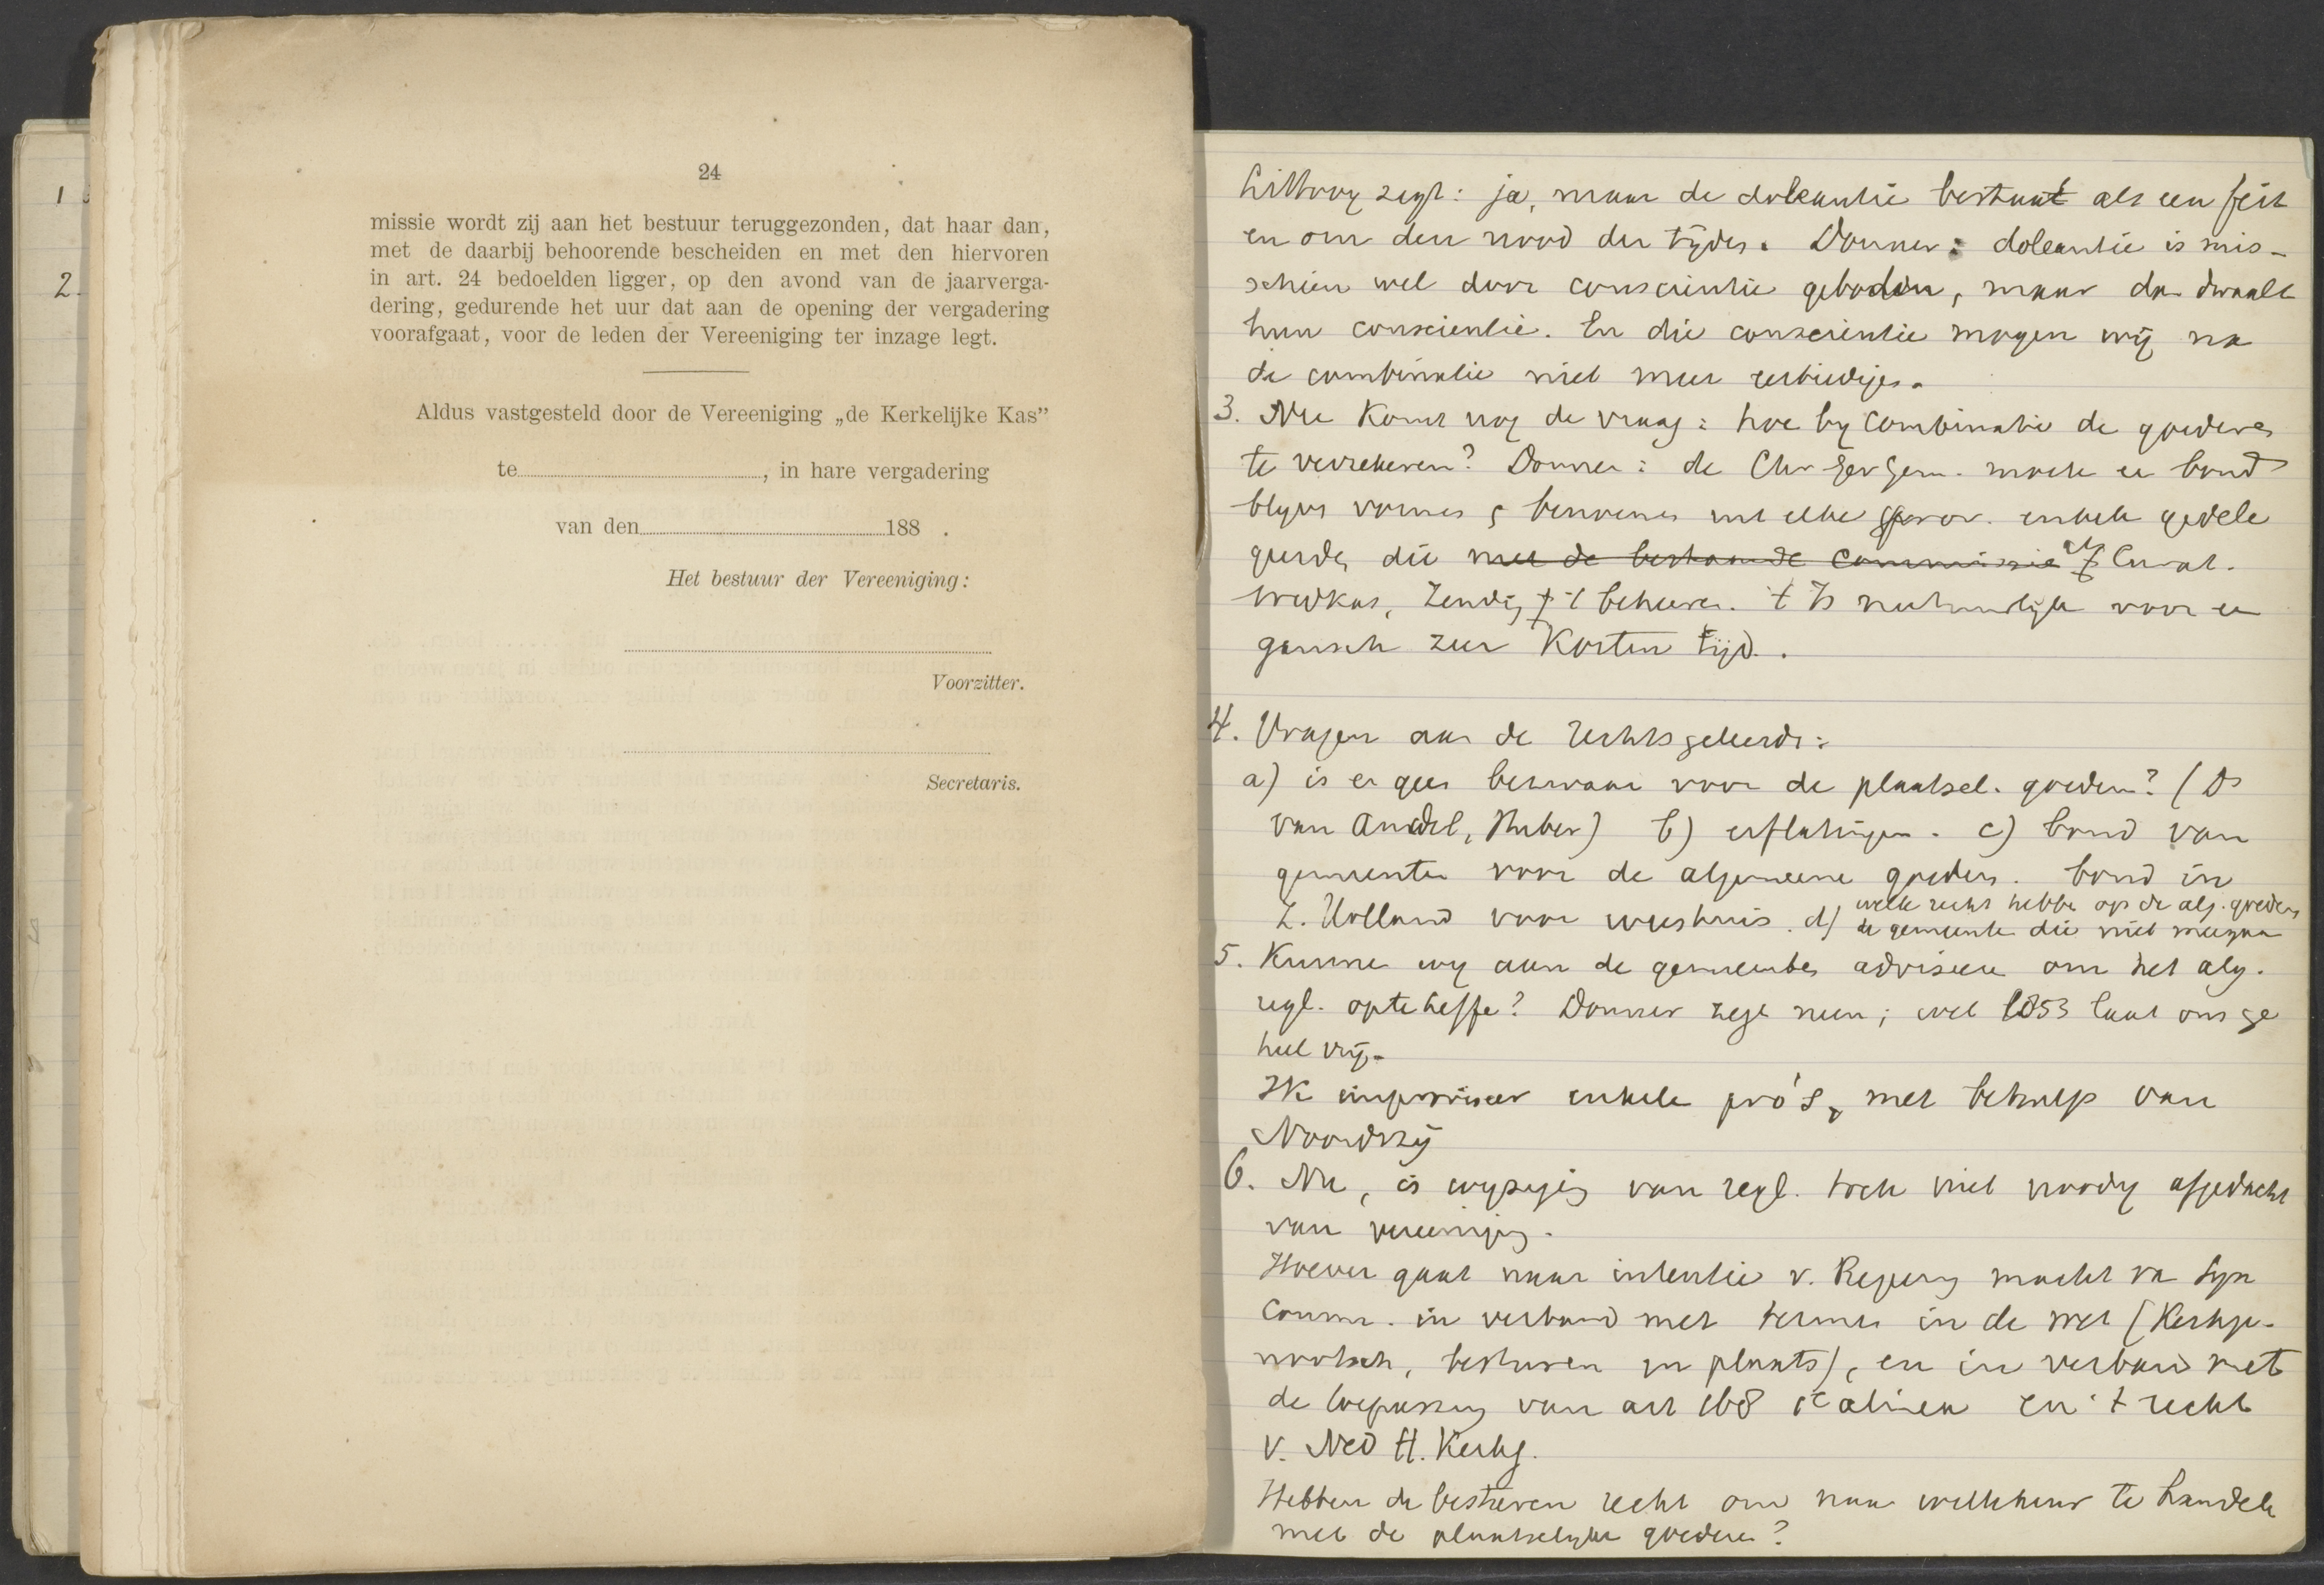 1
2.
24
missie wordt zij aan het bestuur teruggezonden, dat haar dan,
met de daarbij behoorende bescheiden en met den hiervoren
in art. 24 bedoelden ligger, op den avond van de jaarverga-
dering, gedurende het uur dat aan de opening der vergadering
voorafgaat, voor de leden der Vereeniging ter inzage legt.
Aldus vastgesteld door de Vereeniging „de Kerkelijke Kas”
te, in hare vergadering
van den 188 .
Het bestuur der Vereeniging:
Voorzitter.
Secretaris.
Littooy zegt: ja, maar de doleantie bestaat als een feit
en om den nood der tijden. Donner: doleantie is mis-
schien wel door conscientie geboden, maar dan dwaalt
hun conscientie. En die conscientie mogen wij na
de combinatie niet meer eerbiedigen.
3. Nu komt nog de vraag: hoe by combinatie de goederen
te verzekeren? Donner: de Chr Ger Gem. moete een bond
blyven vormen & benoemen uit elke prov. enkele gedele
geerde, die met de bestaande Commissie
Zending 't beheeren. t Is natuurlijk voor een
gansch zeer korten tijd.
4. Vragen aan de rechtsgeleerde:
a) is er geen bezwaar voor de plaatsel. goederen? (Ds
van Andel, Huber) b) erflatingen. c) bond van
gemeenten voor de algemeene goederen. bond in
Z. Holland voor weeshuis. d) welk recht hebben op de alg. goederen
de gemeenten die niet meegaan
5. Kunnen wy aan de gemeentes adviseeren om het alg.
regl. opteheffe? Donner zegt neen; wet 1853 laat ons ge
heel vrij.
Ik improviseer enkele pro's, met behulp van
Noordzij
6. Nu, is wyziging van regl. toch niet noodig afgedacht
van vereeniging.
Hoever gaat naar intentie v. Regeering macht van Syn
Comm. in verband met termen in de wet (Kerkge-
nootsch, besturen en plaats), en in verband met
de toepassing van art 168 1e alinea en 't recht
v. Ned H. Kerkg.
Hebben de besturen recht om naar willekeur te handelen
met de plaatselyke goederen?